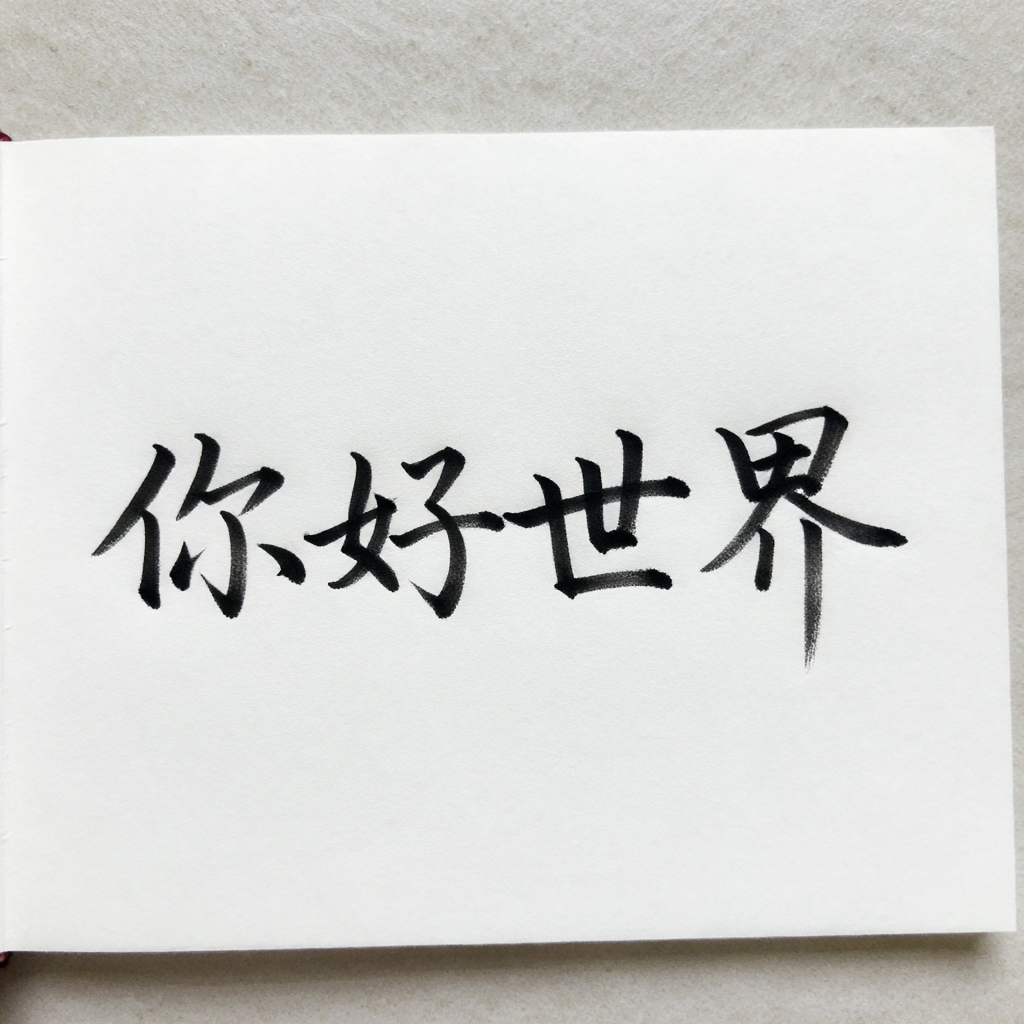 你好世界